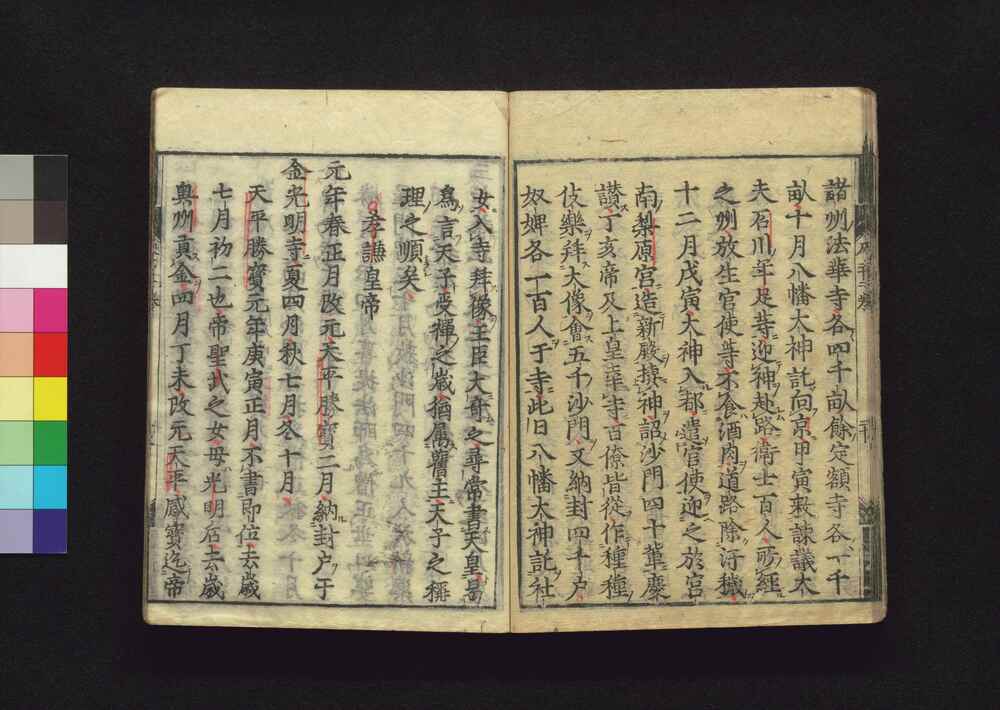 諸州法華寺各四千畝餘定額寺各一千
畝十月八幡大神託向京甲寅敕諫議大
夫石川年足等迎神赴路衛士百人所經
之州放生官使等不食酒肉道路除汙穢
十二月戊寅大神入都遣官使迎之於宮
南梨原宮造新殿揍神詔沙門四十輩慶
讃丁亥帝及上皇幸寺百僚皆從作種種
伎樂拜大像會五千沙門又納封四千户
奴婢各一百人于寺此日八幡大神託社
女入寺拜像王臣大奇之尋常書天皇曷
爲言天子受禪之歳猶屬舊主天子之稱
理之順矣
孝謙皇帝
元年春正月改元天平勝寶二月納封户于
金光明寺夏四月秋七月冬十月
天平勝寶元年庚寅正月不書即位去歳
七月初二也帝聖武之女母光明后去歳
奥州貢金四月丁未改元天平感寶迄帝